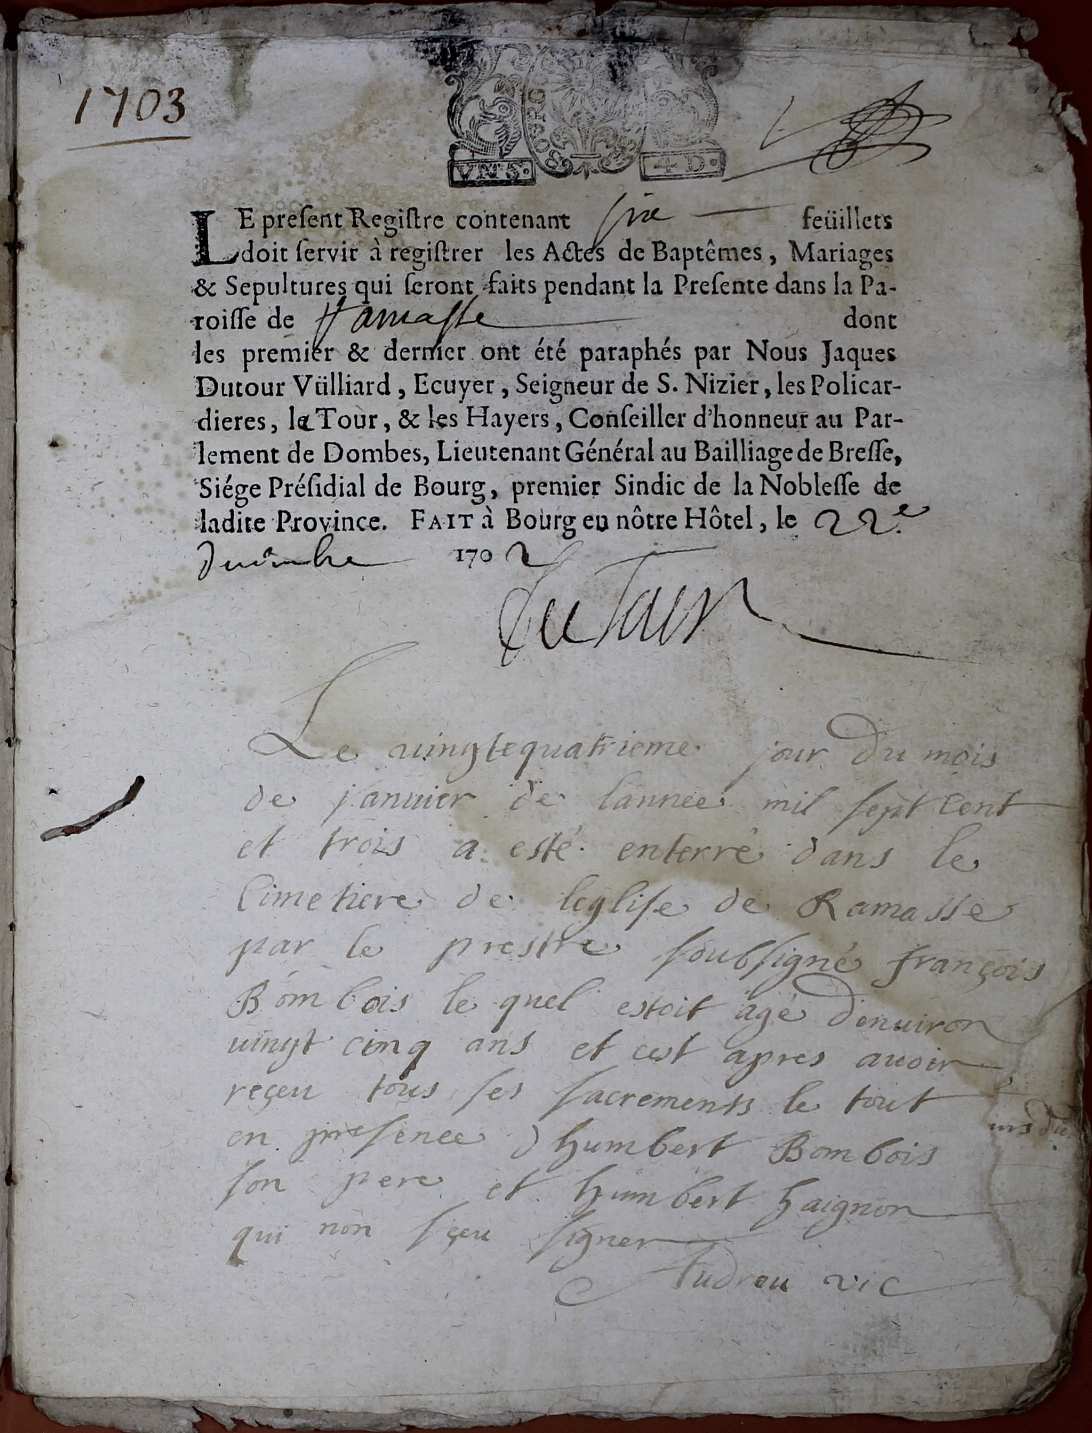 1703
BOURG
VN S.
4 D.
LE preſent Regiſtre contenant six feüillets
doit ſervir à regiſtrer les Actes de Baptêmes, Mariages
& Sepultures qui ſeront faits pendant la Preſente dans la Pa-
roiſſe de Ramasse dont
les premier & dernier ont été paraphés par Nous Jaques
Dutour Vülliard, Ecuyer, Seigneur de S. Nizier, les Policar-
dieres, la Tour, & les Hayers, Conſeiller d'honneur au Par-
lement de Dombes, Lieutenant Général au Bailliage de Breſſe,
Siége Préſidial de Bourg, premier Sindic de la Nobleſſe de
ladite Province. FAIT à Bourg en nôtre Hôtel, le 22e
decembre 1702
DuTour
Le uingtequatrieme jour du mois
de januier de lannee mil sept cent
et trois a esté enterré dans le
Cimetiere de leglise de Ramasse
par le prestre soubsigné françois
Bombois le quel estoit agé denuiron
uingt cinq ans et cest apres auoir
reçeu tous ses sacrements le tout
en presence dhumbert Bombois
son pere et humbert haignon
qui non sçeu signer
Tudreu vic